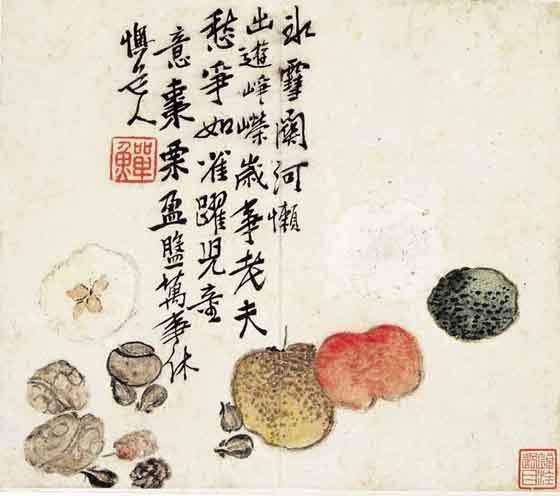 冰雪關河懶
出遊崢嶸歲事老夫
愁爭如雀躍兒童
意棗栗盈盤萬事休
懊道人
鱓